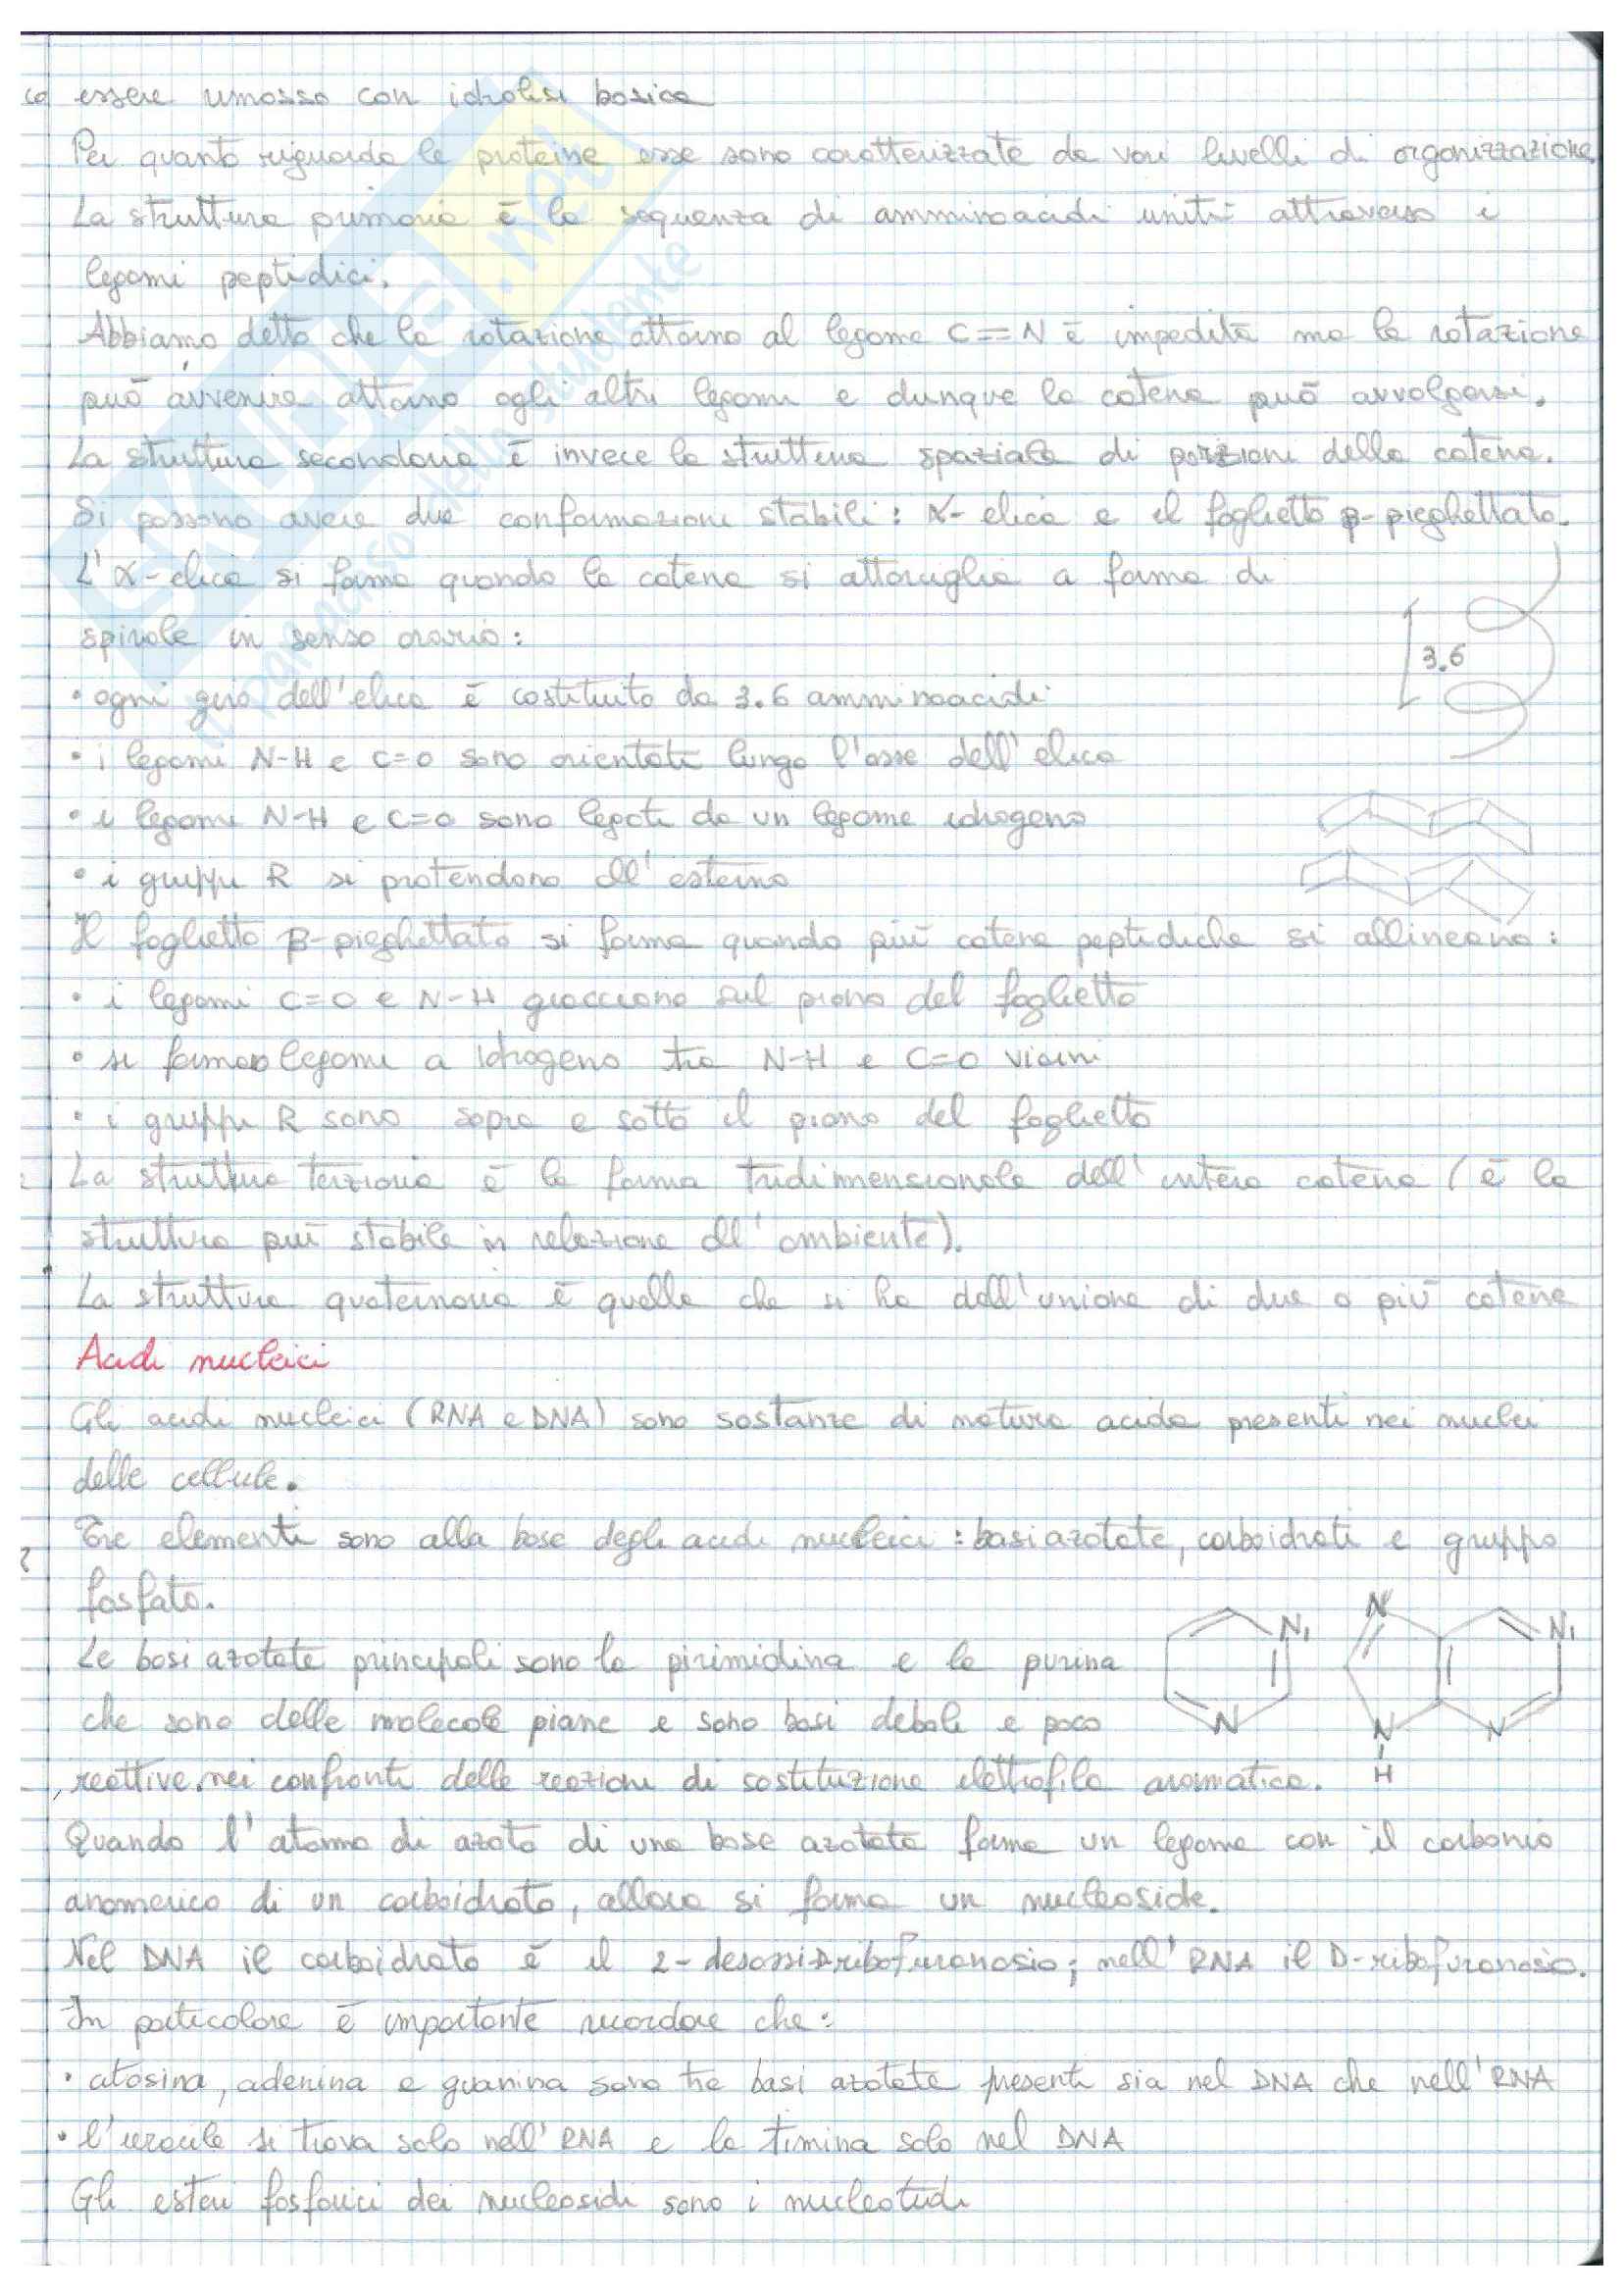 essere rimosso con idrolisi basica
Per quanto riguarda le proteine esse sono caratterizzate da vari livelli di organizzazione
La struttura primaria è la sequenza di amminoacidi uniti attraverso i
legami peptidici.
Abbiamo detto che la rotazione attorno al legame C=N è impedita ma la rotazione
può avvenire attorno agli altri legami e dunque la catena può avvolgersi.
La struttura secondaria è invece la struttura spaziale di porzioni della catena.
Si possono avere due conformazioni stabili: α-elica e il foglietto β-pieghettato.
L'α-elica si forma quando la catena si attorciglia a forma di
spirale in senso orario:
3.6
• ogni giro dell'elica è costituito da 3.6 amminoacidi
• i legami N-H e C=O sono orientati lungo l'asse dell'elica
• i legami N-H e C=O sono legati da un legame idrogeno
• i gruppi R si protendono all'esterno
Il foglietto β-pieghettato si forma quando più catene peptidiche si allineano:
• i legami C=O e N-H giacciono sul piano del foglietto
• si formano legami a idrogeno tra N-H e C=O vicini
• i gruppi R sono sopra e sotto il piano del foglietto
La struttura terziaria è la forma tridimensionale dell'intera catena (è la
struttura più stabile in relazione all'ambiente).
La struttura quaternaria è quella che si ha dall'unione di due o più catene
Acidi nucleici
Gli acidi nucleici (RNA e DNA) sono sostanze di natura acida presenti nei nuclei
delle cellule.
Tre elementi sono alla base degli acidi nucleici: basi azotate, carboidrati e gruppo
fosfato.
Le basi azotate principali sono la pirimidina e la purina
che sono delle molecole piane e sono basi deboli e poco
reattive nei confronti delle reazioni di sostituzione elettrofila aromatica.
N N N N N N H
Quando l'atomo di azoto di una base azotata forma un legame con il carbonio
anomerico di un carboidrato, allora si forma un nucleoside.
Nel DNA il carboidrato è il 2-desossi-D-ribofuranosio; nell'RNA il D-ribofuranosio.
In particolare è importante ricordare che:
• citosina, adenina e guanina sono tre basi azotate presenti sia nel DNA che nell'RNA
• l'uracile si trova solo nell'RNA e la timina solo nel DNA
Gli esteri fosforici dei nucleosidi sono i nucleotidi
SKUOLA.net
il paradiso dello studente